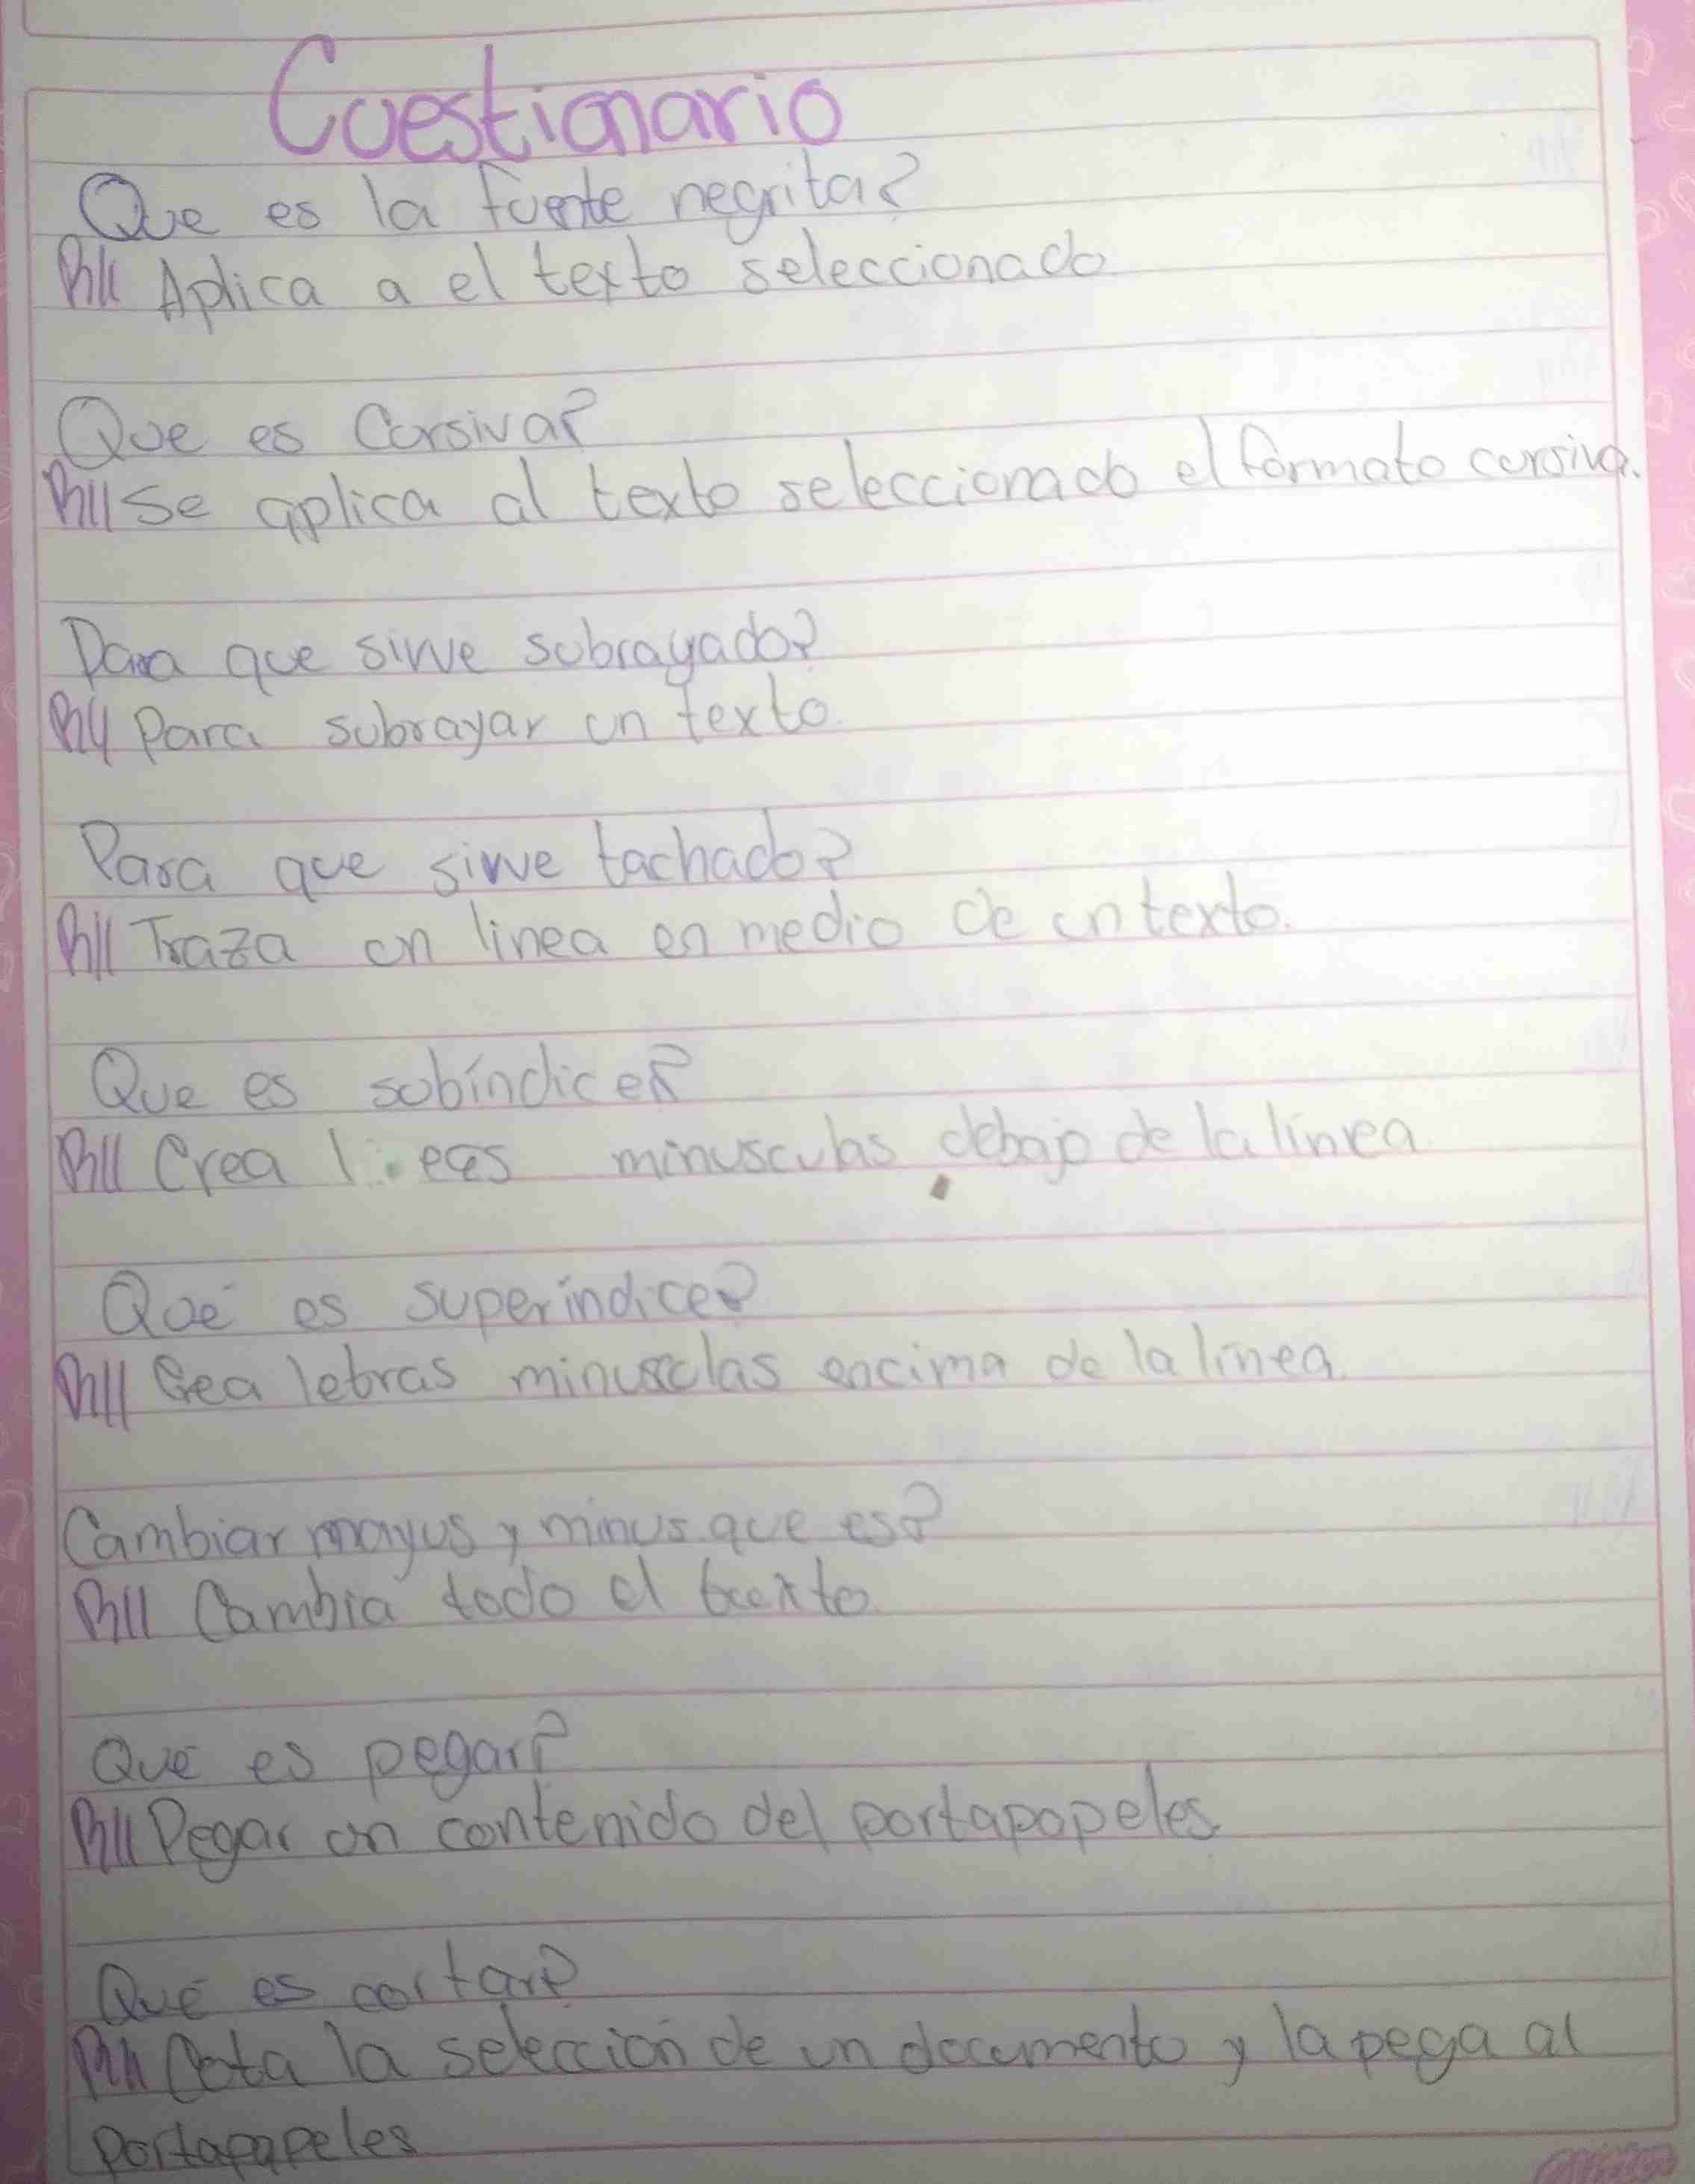 Cuestionario
Que es la fuente negrita?
R// Aplica a el texto seleccionado
Que es Cursiva?
R// Se aplica al texto seleccionado el formato cursiva.
Para que sirve subrayado?
R// Para subrayar un texto.
Para que sirve tachado?
R// Traza un linea en medio de un texto.
Que es subíndice?
R// Crea minusculas debajo de la línea
Qué es superíndice?
R// Crea letras minusclas encima de la línea
Cambiar mayus y minus que es?
R// Cambia todo el
Qué es pegar?
R// Pegar un contenido del portapapeles
Qué es cortar?
R// Cota la selección de un documento y la pega al
portapapeles